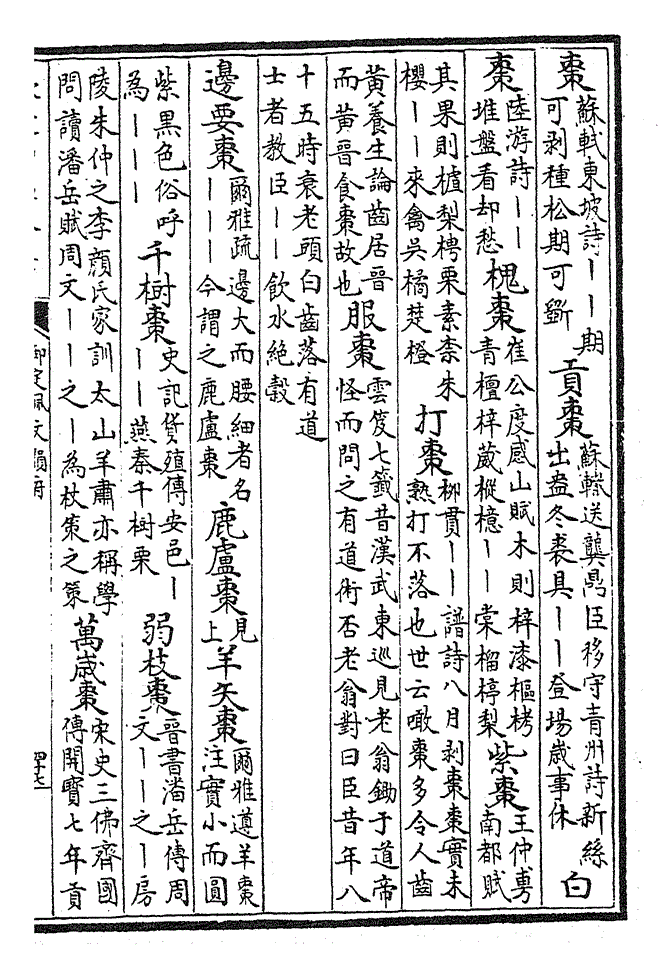 棗蘇軾東坡詩丨丨期可剥種松期可斵　貢棗蘇轍送龔鼎臣移守青州詩新絲出盎冬裘具丨丨登場歲事休　白
棗陸游詩丨丨堆盤看却愁　槐棗崔公度感山賦木則梓漆樞栲青檀梓葳樅檍丨丨棠榴楟梨　紫棗王仲旉南都賦
其果則樝梨梬栗素柰朱櫻丨丨來禽吳橘楚橙　打棗柳貫丨丨譜詩八月剥棗棗實未熟打不落也世云噉棗多令人齒
黃養生論齒居晉而黃晉食棗故也　服棗雲笈七籤昔漢武東巡見老翁鋤于道帝怪而問之有道術否老翁對曰臣昔年八
十五時衰老頭白齒落有道士者教臣丨丨飲水絶穀
邊要棗爾雅疏邊大而腰細者名丨丨丨今謂之鹿盧棗　鹿盧棗見上　羊矢棗爾雅遵羊棗注實小而圓
紫黑色俗呼為丨丨丨　千樹棗史記貨殖傳安邑丨丨丨燕秦千樹栗　弱枝棗晉書潘岳傳周文丨丨之丨房
陵朱仲之李顔氏家訓太山羊肅亦稱學問讀潘岳賦周文丨丨之丨為杖策之策　萬歲棗宋史三佛齊國傳開寶七年貢
御定佩文韻府